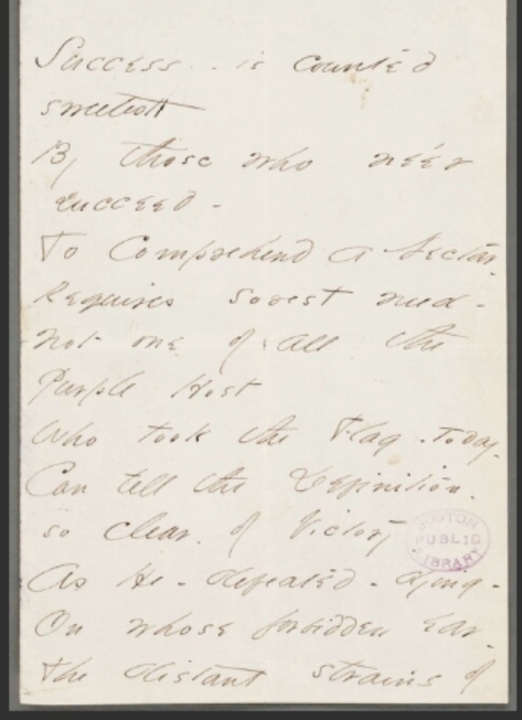 Success - is counted
sweetest
By those who ne'er
succeed -
To Comprehend a Nectar
Requires sorest need -
Not one of all the
Purple Host
Who took the Flag - Today -
Can tell the Definition -
so clear - of Victory
As He - defeated - dying -
On whose forbidden ear -
The distant strains of
BOSTON
PUBLIC
LIBRARY